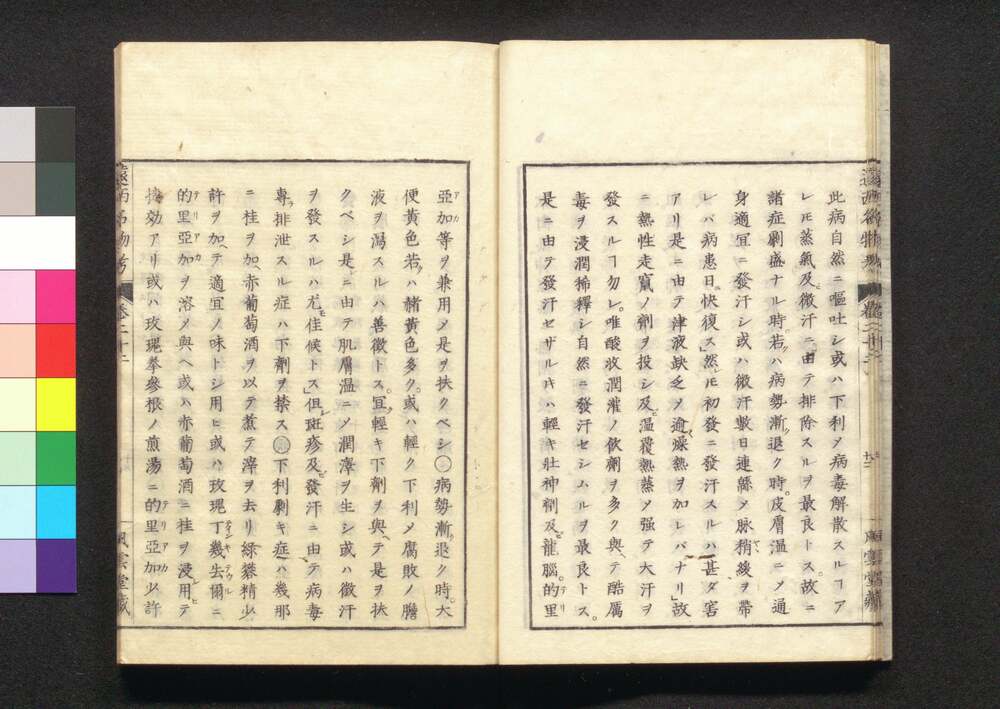 此病自然ニ嘔吐シ或ハ下利メ病毒解散スルヿア
レ𪜈蒸氣及ヒ微汗ニ由テ排除スルヲ最良トス。故ニ
諸症劇盛ナル時。若クハ病勢漸ク退ク時。皮膚温ニメ通
身適宜ニ發汗シ或ハ微汗數日連緜メ脉稍ヤ緩ヲ帶
レバ病患日ニ快復ス」然レ𪜈初發ニ發汗スルハ甚ダ害
アリ是ニ由テ津液缺乏メ逾〻燥熱ヲ加レバナリ」故
ニ熱性走竄ノ劑ヲ投シ及ヒ温覆熱蒸メ强テ大汗ヲ
發スルヿ勿レ。唯酸收潤灌ノ飲劑ヲ多ク與ヘテ酷厲
毒ヲ浸潤稀釋シ自然ニ發汗セシムルヲ最良トス。
是ニ由テ發汗セザルキハ輕キ壯神劑及ヒ龍腦。的里
テリ
亞加等ヲ兼用メ是ヲ扶クベシ○病勢漸ク退ク時。大
アカ
便黄色若クハ赭黄色多ク。或ハ輕ク下利メ腐敗ノ膽
液ヲ瀉スルハ善徴トス。宜ク輕キ下劑ヲ與ヘテ是ヲ扶
クベシ是ニ由テ肌膚温ニメ潤澤ヲ生シ或ハ微汗
ヲ發スルハ尤モ佳候トス」但シ斑疹及ヒ發汗ニ由テ病毒
專ラ排泄スル症ハ下劑ヲ禁ス○下利劇キ症ハ幾那
ニ桂ヲ加ヘ赤葡萄酒ヲ以テ煮テ滓ヲ去リ綠礬精少
許ヲ加ヘテ適宜ノ味トシ用ヒ或ハ玫瑰丁幾去爾ニ
チインキテウル
的里亞加ヲ溶メ與ヘ或ハ赤葡萄酒ニ桂ヲ浸シ用ヒテ
テリアカ
捷効アリ或ハ玫瑰拳參根ノ煎湯ニ的里亞加少許
テリアカ
遠西名物考
卷二十二
風雲堂藏